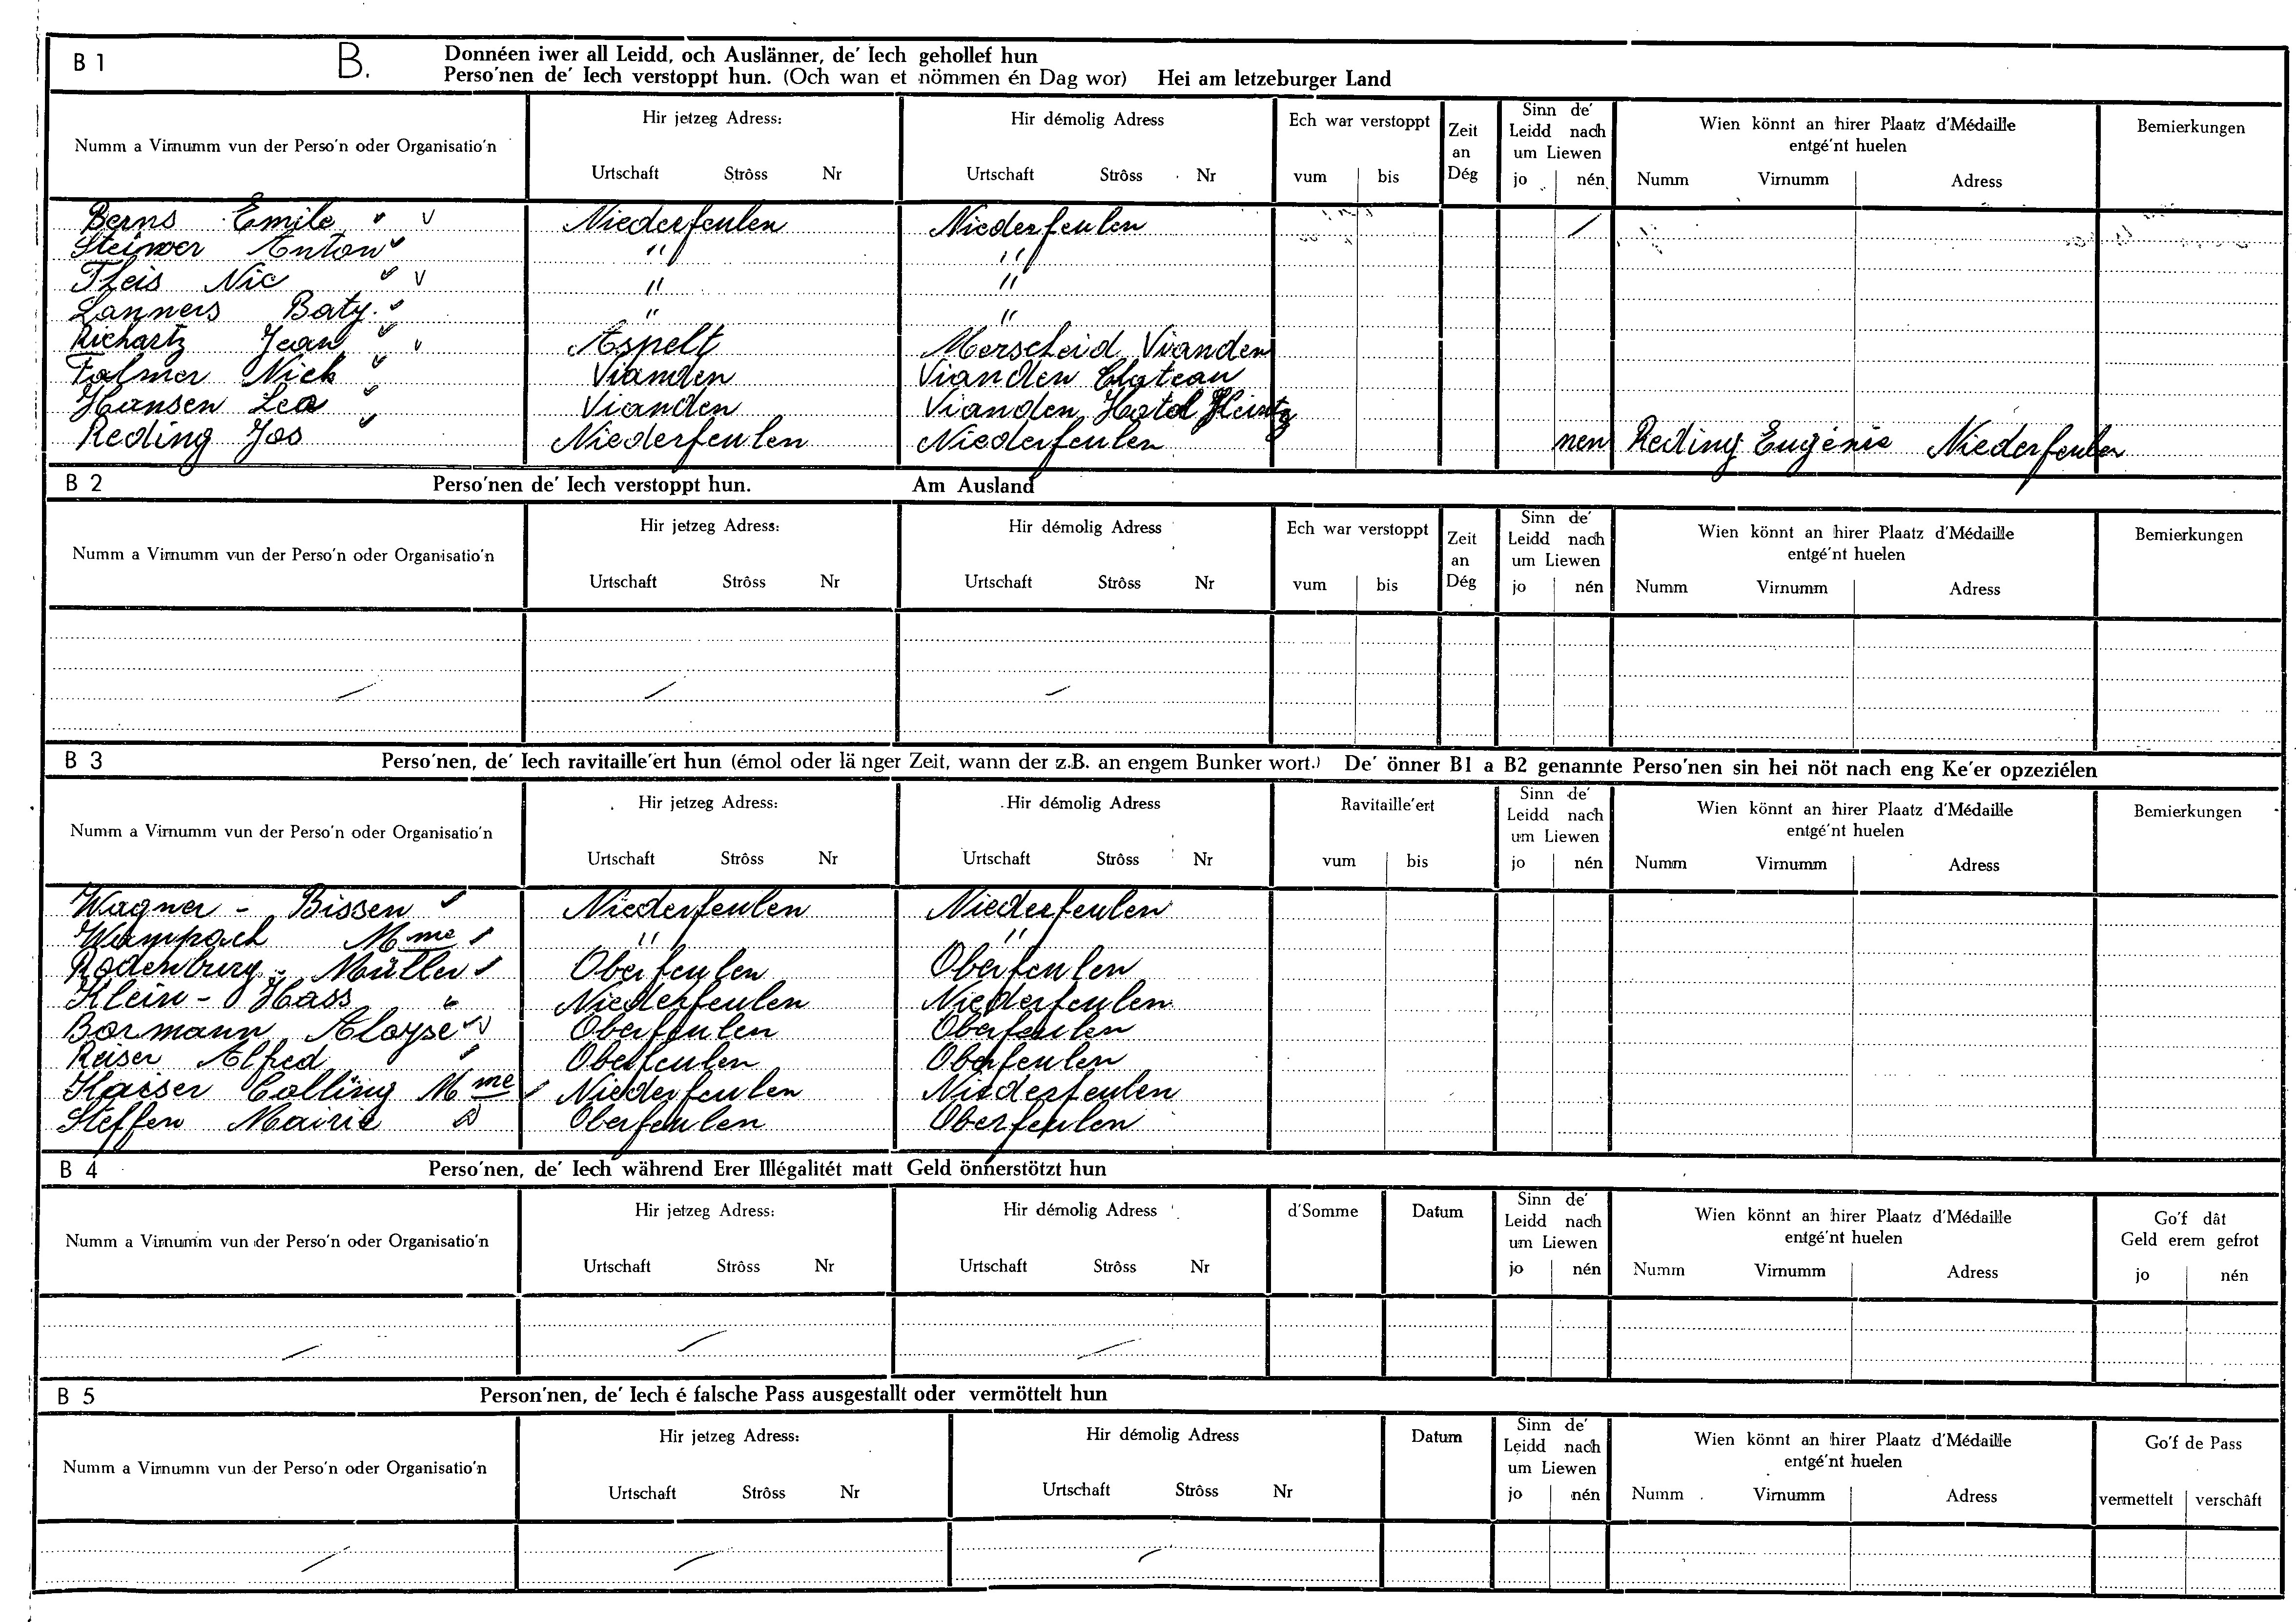 B 1 B. Donnéen iwer all Leidd, och Auslänner, de' Iech gehollef hun
Perso'nen de' Iech verstoppt hun. (Och wan et nömmen én Dag wor) Hei am letzeburger Land
Numm a Virnumm vun der Perso'n oder Organisatio'n
Hir jetzeg Adress:
Urtschaft Strôss Nr
Hir démolig Adress
Urtschaft Strôss Nr
Ech war verstoppt
vum bis
Zeit
an
Dég
Sinn de'
Leidd nach
um Liewen
jo nén
Wien könnt an hirer Plaatz d'Médaille
entgé'nt huelen
Numm Virnumm Adress
Bemierkungen
Berns Emile Niederfeulen Niederfeulen
Steinver Anton " "
Theis Nic " "
Lanners Baty. " "
Richartz Jean Aspelt Merscheid Vianden
Folmer Nick Vianden Vianden Chateau
Hansen Lea Vianden Vianden Hotel Heintz
Reding Jos Niederfeulen Niederfeulen nen Reding Eugénie Niederfeulen
B 2 Perso'nen de' Iech verstoppt hun. Am Ausland
Numm a Virnumm vun der Perso'n oder Organisatio'n
Hir jetzeg Adress:
Urtschaft Strôss Nr
Hir démolig Adress
Urtschaft Strôss Nr
Ech war verstoppt
vum bis
Zeit
an
Dég
Sinn de'
Leidd nach
um Liewen
jo nén
Wien könnt an hirer Plaatz d'Médaille
entgé'nt huelen
Numm Virnumm Adress
Bemierkungen
B 3 Perso'nen, de' Iech ravitaille'ert hun (émol oder länger Zeit, wann der z.B. an engem Bunker wort.) De' önner B1 a B2 genannte Perso'nen sin hei nöt nach eng Ke'er opzeziélen
Numm a Virnumm vun der Perso'n oder Organisatio'n
Hir jetzeg Adress:
Urtschaft Strôss Nr
Hir démolig Adress
Urtschaft Strôss Nr
Ravitaille'ert
vum bis
Sinn de'
Leidd nach
um Liewen
jo nén
Wien könnt an hirer Plaatz d'Médaille
entgé'nt huelen
Numm Virnumm Adress
Bemierkungen
Wagner - Bissen Niederfeulen Niederfeulen
Wampach Mme " "
Rodenburg - Müller Oberfeulen Oberfeulen
Klein - Hass Niederfeulen Niederfeulen
Bormann Aloyse Oberfeulen Oberfeulen
Reiser Alfred Oberfeulen Oberfeulen
Kaiser Colling Mme Niederfeulen Niederfeulen
Steffen Mairie Oberfeulen Oberfeulen
B 4 Perso'nen, de' Iech während Erer Illégalitét matt Geld önnerstötzt hun
Numm a Virnumm vun der Perso'n oder Organisatio'n
Hir jetzeg Adress:
Urtschaft Strôss Nr
Hir démolig Adress
Urtschaft Strôss Nr
d'Somme
Datum
Sinn de'
Leidd nach
um Liewen
jo nén
Wien könnt an hirer Plaatz d'Médaille
entgé'nt huelen
Numm Virnumm Adress
Go'f dât
Geld erem gefrot
jo nén
B 5 Person'nen, de' Iech é falsche Pass ausgestallt oder vermöttelt hun
Numm a Virnumm vun der Perso'n oder Organisatio'n
Hir jetzeg Adress:
Urtschaft Strôss Nr
Hir démolig Adress
Urtschaft Strôss Nr
Datum
Sinn de'
Leidd nach
um Liewen
jo nén
Wien könnt an hirer Plaatz d'Médaille
entgé'nt huelen
Numm Virnumm Adress
Go'f de Pass
vermettelt verschâft